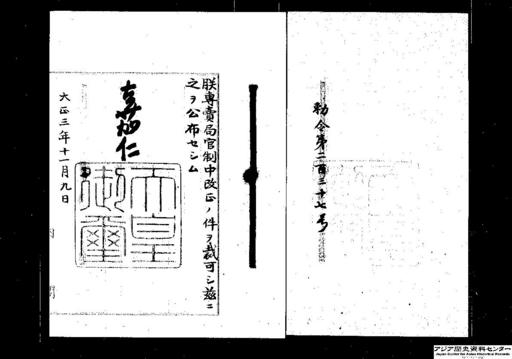 勅令第二百三十七号
朕専賣局官制中改正ノ件ヲ裁可シ茲ニ
之ヲ公布セシム
嘉仁
天皇
御璽
大正三年十一月九日
アジア歴史資料センター
Japan Center for Asian Historical Records